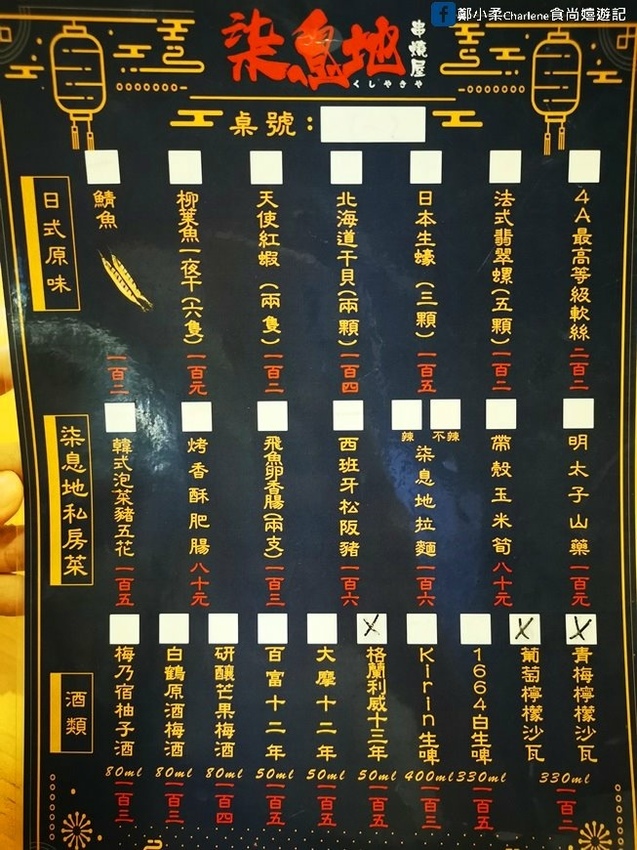 鄭小柔Charlene食尚嬉遊記
柒息地
串燒屋
くしやきや
桌號：
日式原味
4A最高等級軟絲 二百二
法式翡翠螺(五顆) 一百二
日本生蠔(三顆) 一百五
北海道干貝(兩顆) 一百四
天使紅蝦(兩隻) 一百二
柳葉魚一夜干(六隻) 一百元
鯖魚 一百二
柒息地私房菜
明太子山藥 一百元
帶殼玉米筍 八十元
不辣
辣
柒息地拉麵 一百六
西班牙松阪豬 一百六
飛魚卵香腸(兩支) 一百三
烤香酥肥腸 八十元
韓式泡菜豬五花 一百五
酒類
青梅檸檬沙瓦
葡萄檸檬沙瓦
330ml 一百二
1664白生啤 330ml 一百五
Kirin生啤 400ml 一百三
格蘭利威十三年 50ml 一百五
大摩十二年 50ml 一百五
百富十二年 50ml 一百五
研釀芒果梅酒 80ml 一百四
白鶴原酒梅酒 80ml 一百三
梅乃宿柚子酒 80ml 一百三